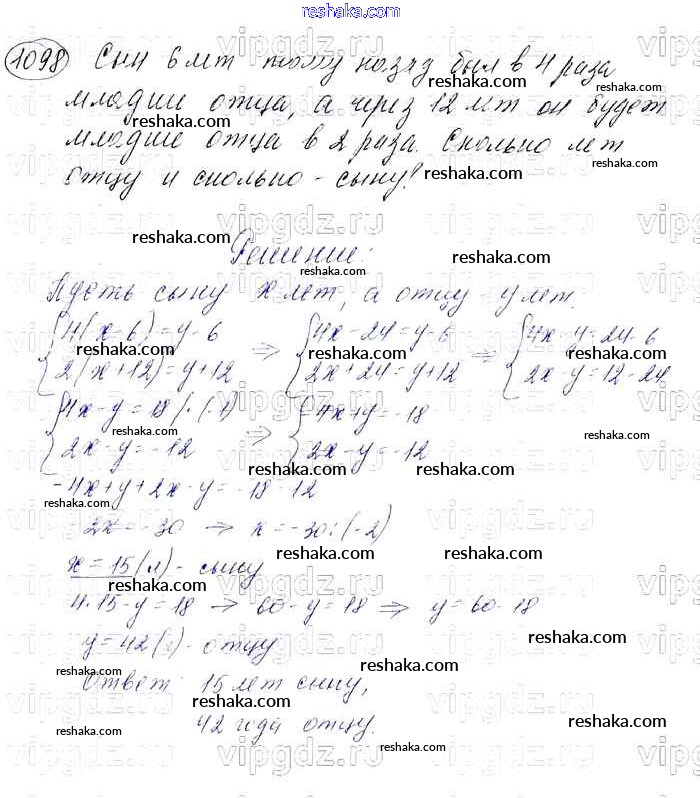 reshaka.com
1098 Сын 6 лет тому назад был в 4 раза
младше отца, а через 12 лет он будет
младше отца в 2 раза. Сколько лет
отцу и сколько - сыну?
Решение:
Пусть сыну x лет, а отцу - y лет.
{4(x-6)=y-6 => {4x-24=y-6 => {4x-y=24-6
{2(x+12)=y+12 {2x+24=y+12 {2x-y=12-24
{4x-y=18 |·(-1) => {-4x+y=-18
{2x-y=-12 {2x-y=-12
-4x+y+2x-y=-18-12
-2x=-30 -> x=-30:(-2)
x=15(л) - сыну
4·15-y=18 -> 60-y=18 => y=60-18
y=42(г) - отцу
Ответ: 15 лет сыну,
42 года отцу.